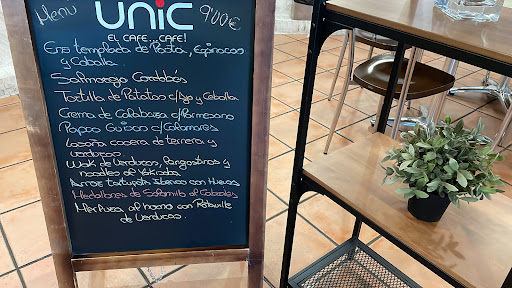 Menu UNIC 9'00€
EL CAFE...CAFE!
templada de Pasta, Espinacas
y Cebolla
Salmorejo Cordobes
Tortilla de Patatas c/Ajo y Cebolla
Crema de Calabaza c/Parmesano
Papas Guisos c/Calamares
Lasaña casera de ternera y
verduras
Wok de Verduras, langostinos y
noodles of Yakisoba
Arroz Iberico con Huevos
Medallones de Solomillo al Cabrales
Merluza al horno con Pistouille
de Verduras.